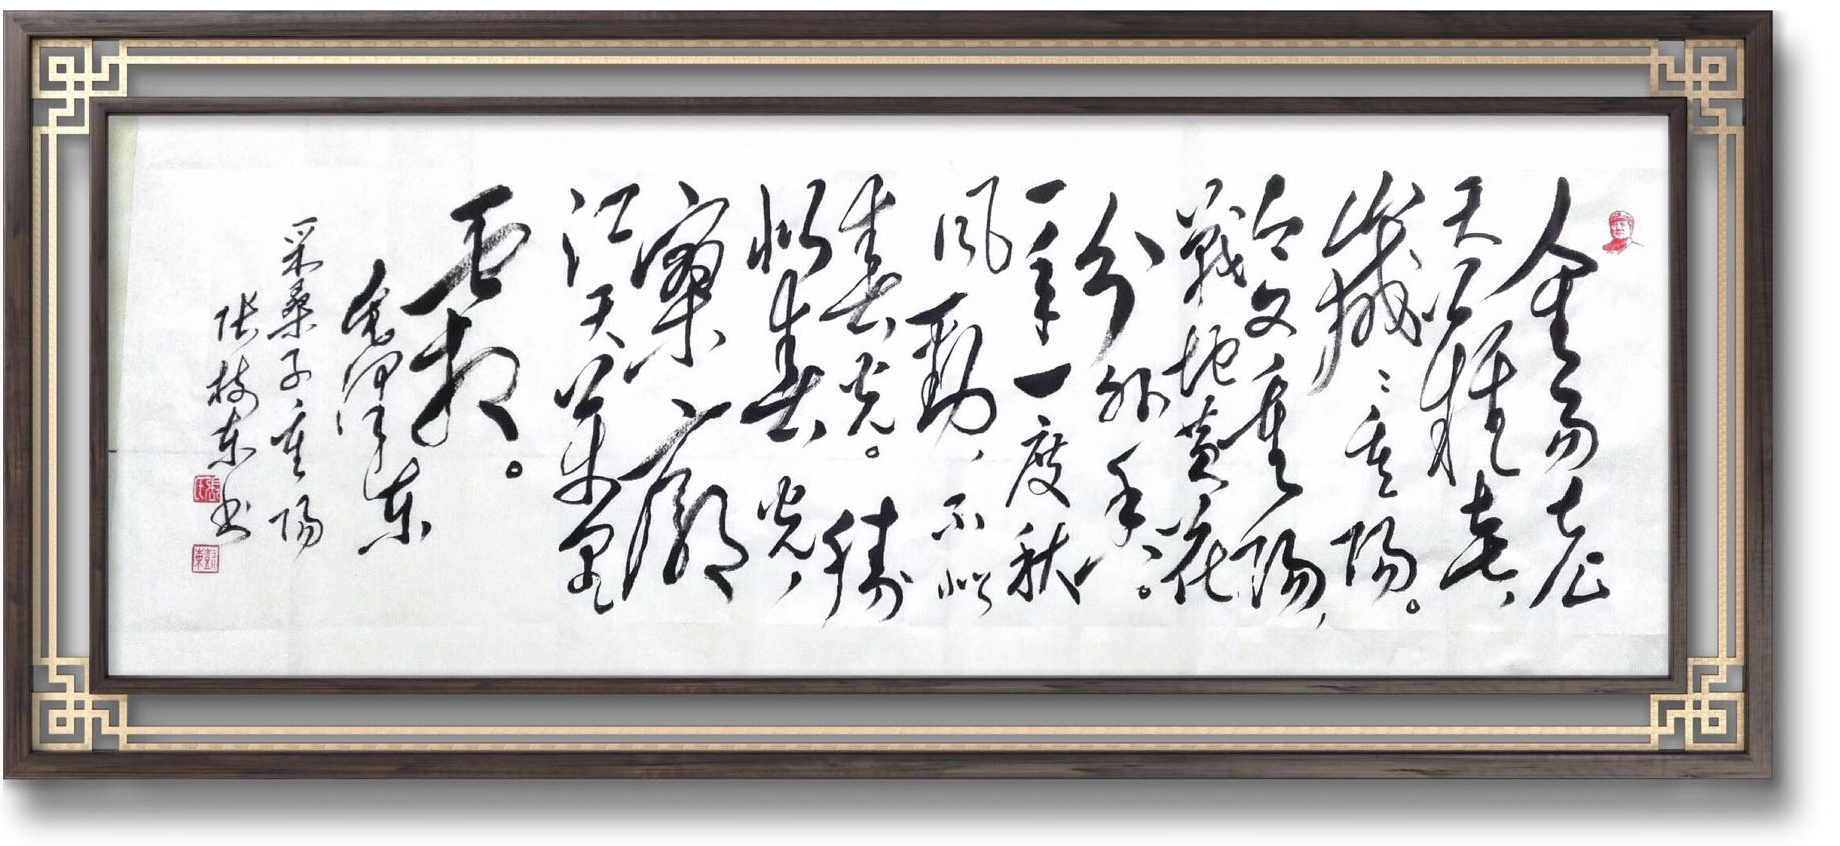 人生易老
天難老,
歲歲重陽。
今又重陽,
戰地黄花
分外香。
一年一度秋
风勁,不似
春光。勝
似春光,
寥廓
江天萬里
霜。
毛泽东
采桑子重陽
张枝东书